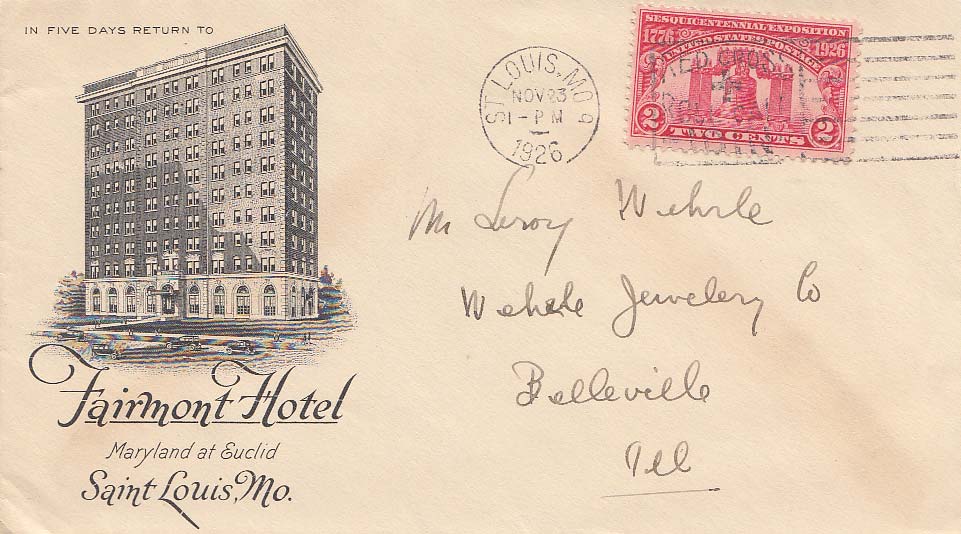 IN FIVE DAYS RETURN TO
Fairmont Hotel
Maryland at Euclid
Saint Louis, Mo.
ST. LOUIS, MO. 9
NOV 23
1-PM
1926
SESQUICENTENNIAL EXPOSITION
1776 1926
UNITED STATES POSTAGE
2 TWO CENTS 2
RED CROSS
Mr Leroy Wehrle
Wehrle Jewelery Co
Belleville
Ill